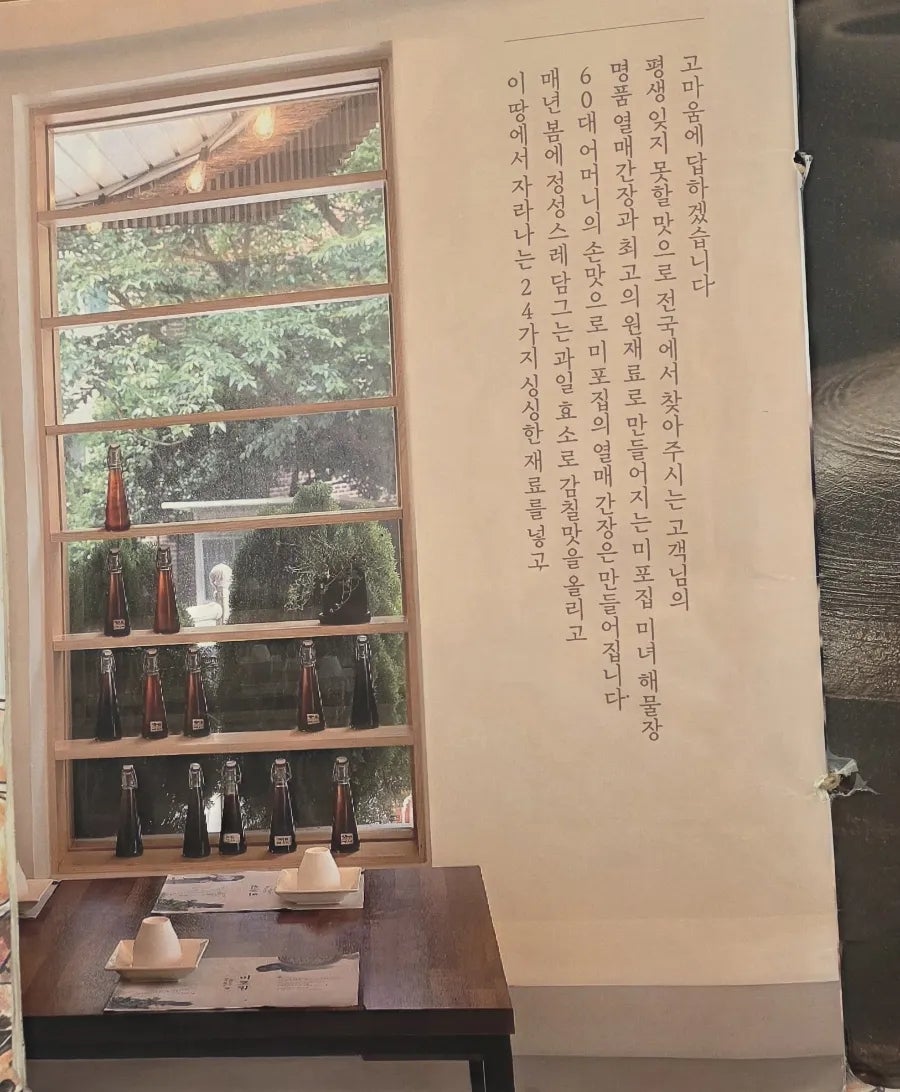 이 땅에서 자라나는 24가지 싱싱한 재료를 넣고
매년 봄에 정성스레 담그는 과일 효소로 감칠맛을 올리고
60대 어머니의 손맛으로 미포집의 열매 간장은 만들어집니다.
명품 열매간장과 최고의 원재료로 만들어지는 미포집 미녀 해물장
평생 잊지 못할 맛으로 전국에서 찾아주시는 고객님의
고마움에 답하겠습니다